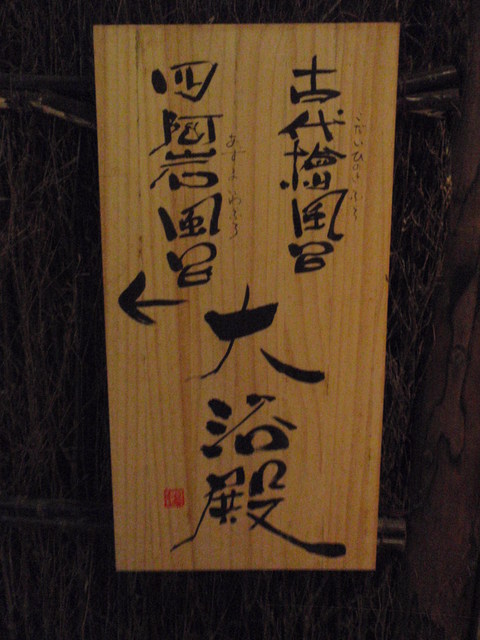 古代檜風呂
こだいひのきぶろ
四阿岩風呂
あずまやいわぶろ
大浴殿